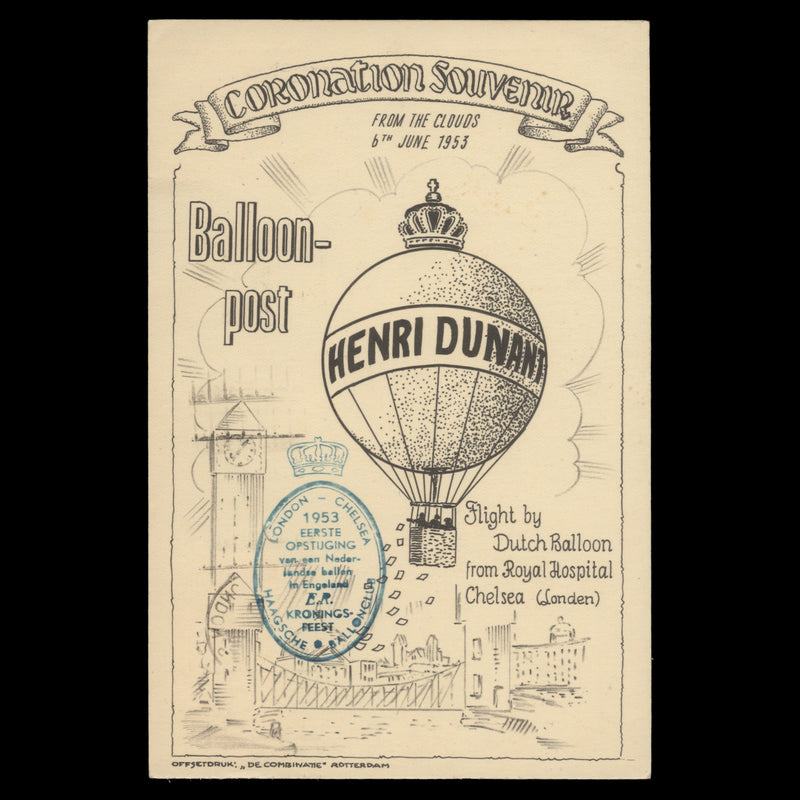 CORONATION SOUVENIR
FROM THE CLOUDS
6TH JUNE 1953
Balloon-
post
HENRI DUNANT
Flight by
Dutch Balloon
from Royal Hospital
Chelsea (Londen)
LONDON – CHELSEA
1953
EERSTE
OPSTIJGING
van een Neder-
landse ballon
in Engeland
E.R.
KRONINGS-
FEEST
HAAGSCHE ● BALLONCLUB
OFFSETDRUK: „DE COMBINATIE" ROTTERDAM